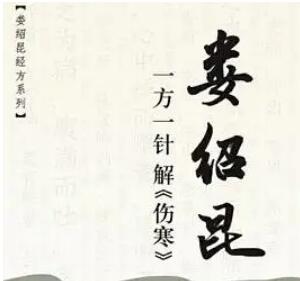 娄绍昆
一方一针 解《伤寒》
【娄绍昆经方系列】